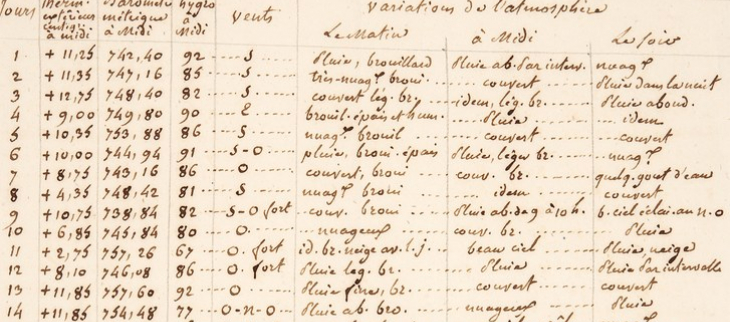 Jours Therm. extérieur centigr. à midi Baromètre métrique à Midi hygro à Midi Vents Variations de l'atmosphère
Le Matin à Midi Le Soir
1 +11,25 742,40 92 S pluie, brouillard pluie ab. par interv. nuagx
2 +11,35 747,16 85 S très-nuagx broui couvert pluie dans la nuit
3 +12,75 748,40 82 S couvert lég. br. idem, lég. br. pluie abond.
4 +9,00 749,80 90 E brouil. épais et hum. pluie idem
5 +10,35 753,88 86 S nuagx brouil couvert couvert
6 +10,00 744,94 91 S-O pluie, broui. épais pluie, léger br. nuagx
7 +8,75 743,16 86 O couvert, broui couv. br. quelq. gout. d'eau
8 +4,35 748,42 81 S nuagx broui idem couvert
9 +10,75 738,84 82 S-O fort couv. broui pluie ab. de 9 à 10 h. b. ciel éclai. au n.o
10 +6,85 745,84 80 O nuageux couv. br. pluie
11 +2,75 757,26 67 O. fort id. br. neige av. l. j. beau ciel pluie, neige
12 +8,10 746,08 86 O. fort pluie leg. br. pluie pluie par intervalle
13 +11,85 757,60 92 O pluie fine, br. couvert couvert
14 +11,85 754,48 77 O-n-O pluie ab. bro. nuageux pluie